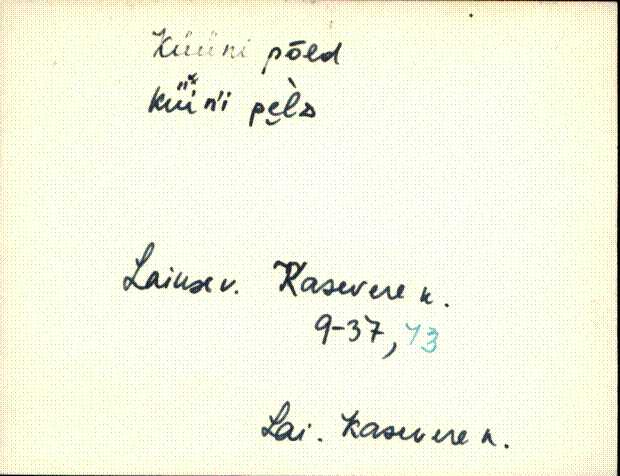 Küüni põld
küün'i pe̮l̀D
Laiuse v. Kasevere k.
9-37, 43
Lai. Kasevere k.